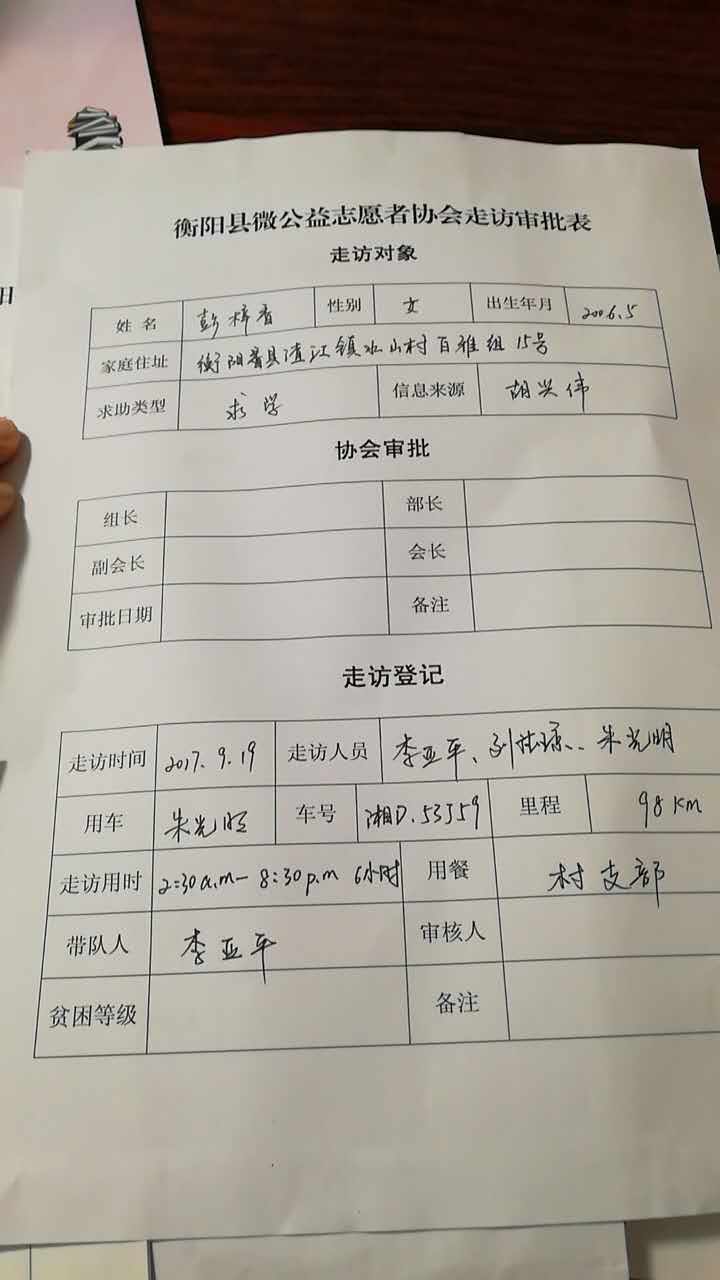 衡阳县微公益志愿者协会走访审批表
走访对象
姓名 彭梓香 性别 女 出生年月 2006.5
家庭住址 衡阳县渣江镇 山村百雅组15号
求助类型 求学 信息来源 胡兴伟
协会审批
组长 部长
副会长 会长
审批日期 备注
走访登记
走访时间 2017.9.19 走访人员 李亚平、刘 、朱光明
用车 朱光明 车号 湘D.53J59 里程 98Km
走访用时 2:30a.m-8:30p.m 6小时 用餐 村支部
带队人 李亚平 审核人
贫困等级 备注